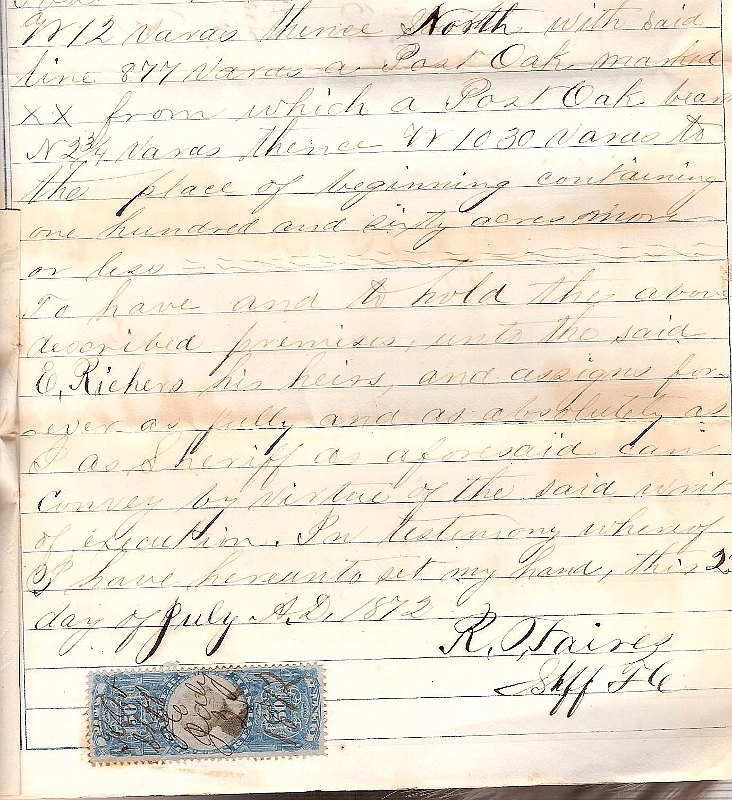 W 12 varas thence North with said
line 877 varas a Post Oak marked
XX from which a Post Oak bears
N 2 3/4 varas thence W 1030 varas to
the place of beginning containing
one hundred and sixty acres more
or less
To have and to hold the above
described premises, unto the said
E. Richers his heirs, and assigns for-
ever as fully and as absolutely as
I as Sheriff as aforesaid can
convey by virtue of the said writ
of execution. In testimony whereof
I have hereunto set my hand, this 2
day of July A.D. 1872
R. O. Faires
Shff F C